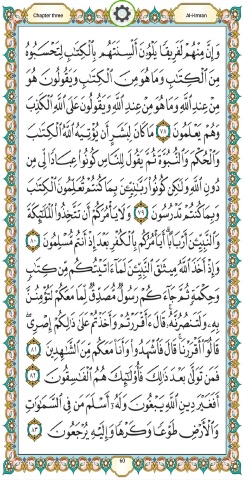 Chapter three
Al-Imran
وَإِنَّ مِنْهُمْ لَفَرِيقًا يَلْوُۥنَ أَلْسِنَتَهُم بِٱلْكِتَٰبِ لِتَحْسَبُوهُ
مِنَ ٱلْكِتَٰبِ وَمَا هُوَ مِنَ ٱلْكِتَٰبِ وَيَقُولُونَ هُوَ
مِنْ عِندِ ٱللَّهِ وَمَا هُوَ مِنْ عِندِ ٱللَّهِ وَيَقُولُونَ عَلَى ٱللَّهِ ٱلْكَذِبَ
وَهُمْ يَعْلَمُونَ ٧٨ مَا كَانَ لِبَشَرٍ أَن يُؤْتِيَهُ ٱللَّهُ ٱلْكِتَٰبَ
وَٱلْحُكْمَ وَٱلنُّبُوَّةَ ثُمَّ يَقُولَ لِلنَّاسِ كُونُوا۟ عِبَادًا لِّى مِن
دُونِ ٱللَّهِ وَلَٰكِن كُونُوا۟ رَبَّٰنِيِّۦنَ بِمَا كُنتُمْ تُعَلِّمُونَ ٱلْكِتَٰبَ
وَبِمَا كُنتُمْ تَدْرُسُونَ ٧٩ وَلَا يَأْمُرَكُمْ أَن تَتَّخِذُوا۟ ٱلْمَلَٰٓئِكَةَ
وَٱلنَّبِيِّۦنَ أَرْبَابًا أَيَأْمُرُكُم بِٱلْكُفْرِ بَعْدَ إِذْ أَنتُم مُّسْلِمُونَ ٨٠
وَإِذْ أَخَذَ ٱللَّهُ مِيثَٰقَ ٱلنَّبِيِّۦنَ لَمَآ ءَاتَيْتُكُم مِّن كِتَٰبٍ
وَحِكْمَةٍ ثُمَّ جَآءَكُمْ رَسُولٌ مُّصَدِّقٌ لِّمَا مَعَكُمْ لَتُؤْمِنُنَّ
بِهِۦ وَلَتَنصُرُنَّهُۥ قَالَ ءَأَقْرَرْتُمْ وَأَخَذْتُمْ عَلَىٰ ذَٰلِكُمْ إِصْرِى
قَالُوٓا۟ أَقْرَرْنَا قَالَ فَٱشْهَدُوا۟ وَأَنَا۠ مَعَكُم مِّنَ ٱلشَّٰهِدِينَ ٨١
فَمَن تَوَلَّىٰ بَعْدَ ذَٰلِكَ فَأُو۟لَٰٓئِكَ هُمُ ٱلْفَٰسِقُونَ ٨٢
أَفَغَيْرَ دِينِ ٱللَّهِ يَبْغُونَ وَلَهُۥٓ أَسْلَمَ مَن فِى ٱلسَّمَٰوَٰتِ
وَٱلْأَرْضِ طَوْعًا وَكَرْهًا وَإِلَيْهِ يُرْجَعُونَ ٨٣
60